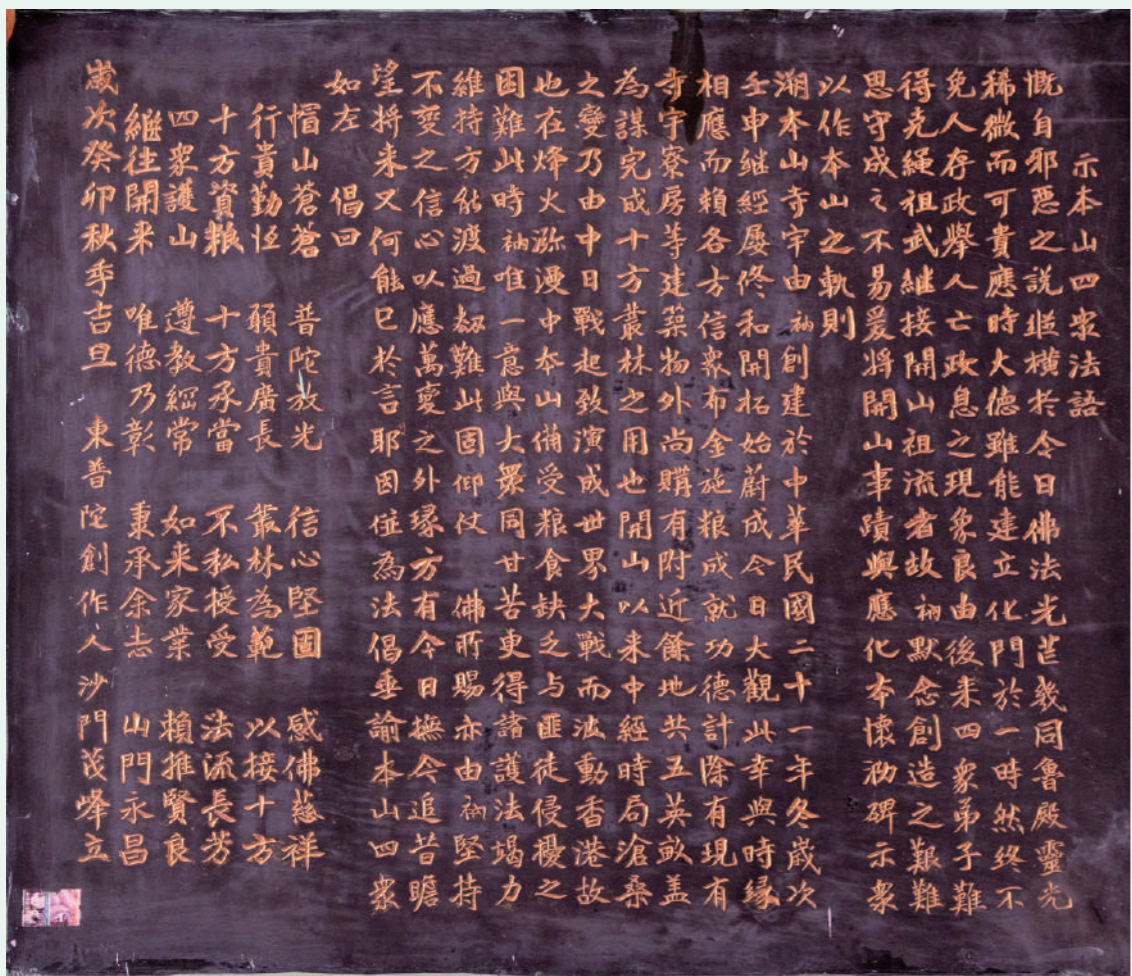 示本山四眾法語
慨自邪惡之說縱橫於今日佛法光芒幾同魯殿靈光
稀微而可貴應時大德雖能建立化門於一時然終不
免人存政舉人亡政息之現象良由後来四眾弟子難
得克繩祖武継接開山祖流者故衲默念創造之艱難
思守成之不易爰將開山事蹟與應化本懷勒碑示眾
以作本山之軌則
溯本山寺宇由衲創建於中華民國二十一年冬歲次
壬申継經屢修和開拓始蔚成今日大觀此幸與時緣
相應而賴各方信眾布金施粮成就功德計除有現有
寺宇寮房等建築物外尚購有附近餘地共五英畝盖
為謀完成十方叢林之用也開山以来中經時局滄桑
之變乃由中日戰起致演成世界大戰而波動香港故
也在烽火瀰漫中本山備受粮食缺乏与匪徒侵擾之
困難此時衲唯一意與大眾同甘苦更得諸護法竭力
維持方能渡過劫難此固仰仗　佛所賜亦由衲堅持
不變之信心以應萬變之外緣方有今日撫今追昔瞻
望將来又何能已於言耶因僅為法倡垂諭本山四眾
如左　倡曰
帽山蒼蒼　普陀放光　信心堅固　感佛慈祥
行貴勤恆　願貴廣長　叢林為範　以接十方
十方資粮　十方承當　不私授受　法流長芳
四眾護山　遵教綱常　如来家業　賴推賢良
継往開来　唯德乃彰　秉承余志　山門永昌
歲次癸卯秋季吉旦　東普陀創作人沙門茂峰立